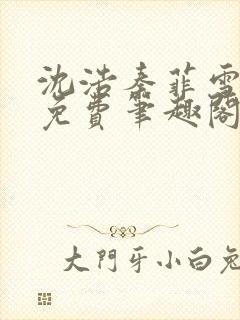 沈浩秦菲雪
免費筆趣閣
大門牙小白兔